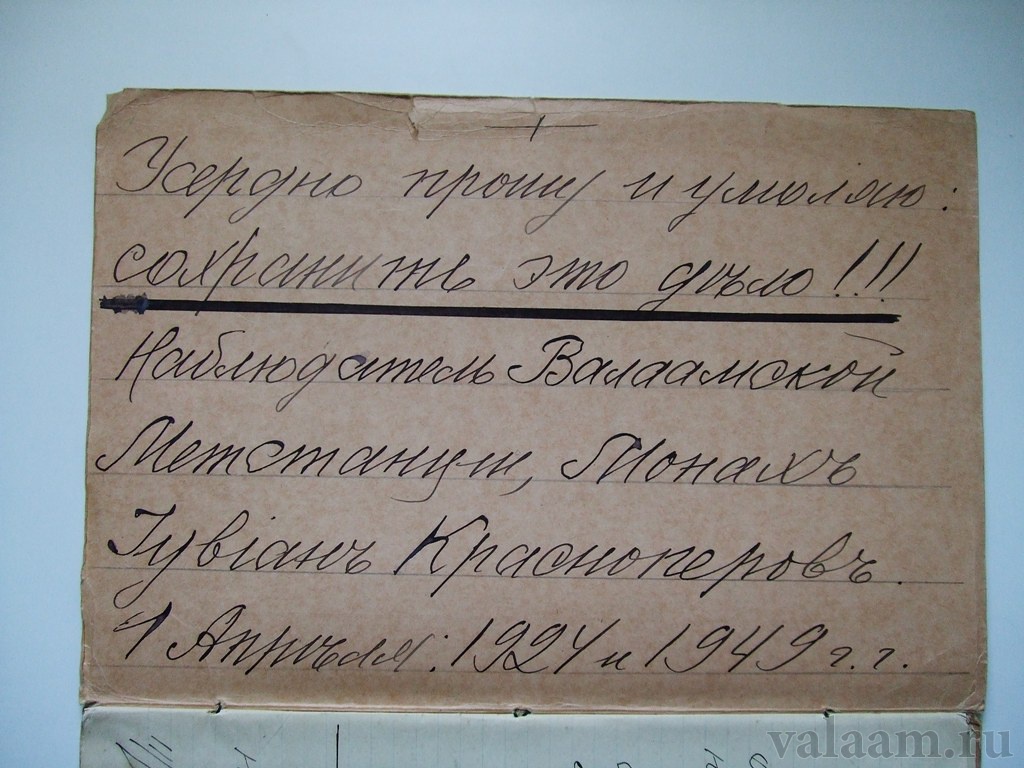 Усердно прошу и умоляю:
сохраните это дѣло!!!
Наблюдатель Валаамской
Метстанции, Монахъ
Іувіанъ Красноперовъ.
1 Апрѣля: 1924 и 1949 г.г.
valaam.ru